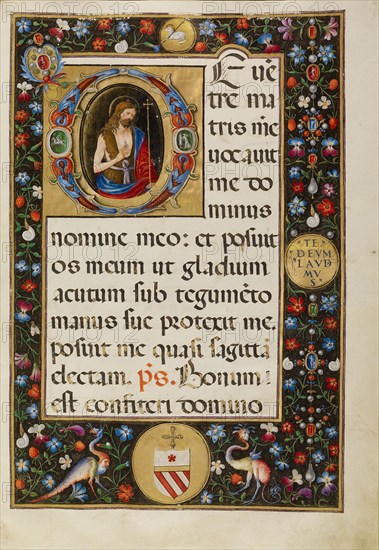 E uē
tre ma
tris me
uocauit
me do
minus
nomine meo: et posuit
os meum ut gladium
acutum sub tegumēto
manus sue protexit me.
posuit me quasi sagittā
electam. p̄s. Bonum
est confiteri domino
TE
DEVM
LAVD
MV
S